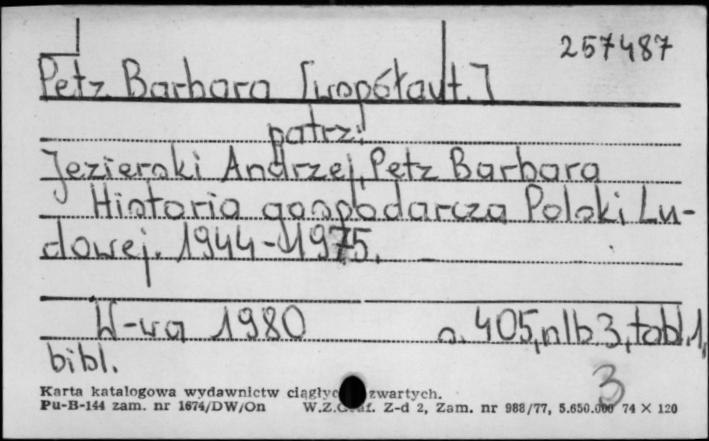 257487
Petz Barbara [współaut.]
patrz:
Jezierski Andrzej, Petz Barbara
Historia gospodarcza Polski Lu-
dowej. 1944-1975.
W-wa 1980 s. 405, nlb 3, tabl. 1,
bibl.
3
Karta katalogowa wydawnictw zwartych.
Pu-B-144 zam. nr 1674/DW/On Z-d 2, Zam. nr 988/77, 5.650.000 74 × 120